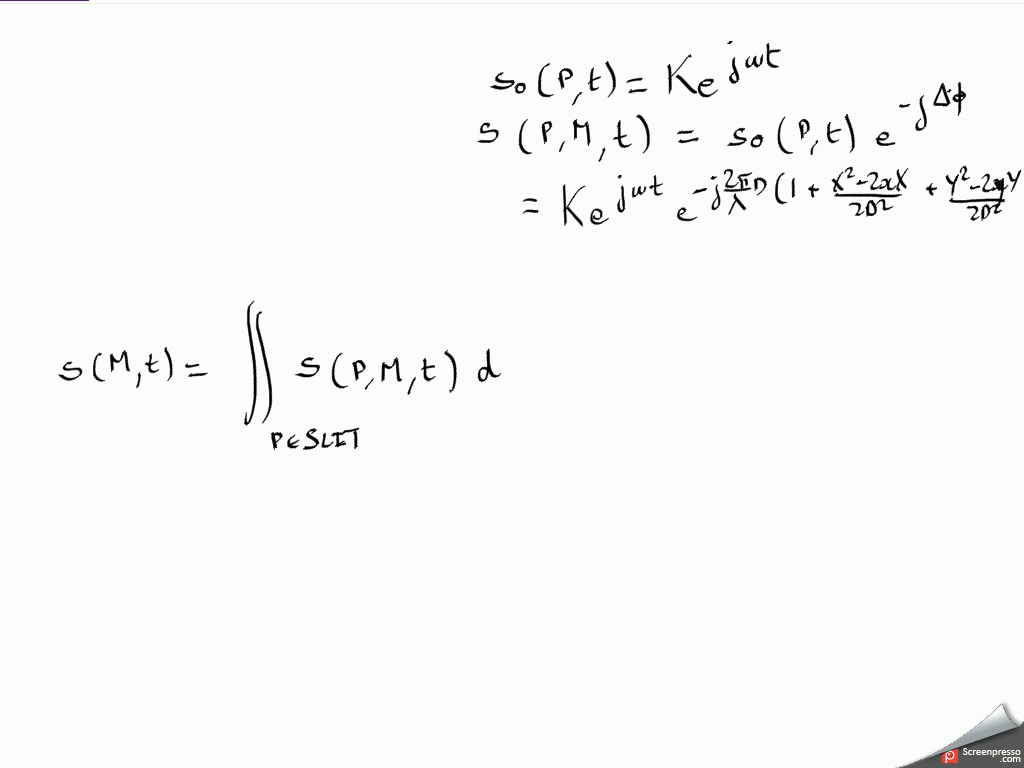 s₀(P,t) = K e^{jωt}
s(P,M,t) = s₀(P,t) e^{-jΔϕ}
= K e^{jωt} e^{-j\frac{2π}{λ}D(1 + \frac{X²-2xX}{2D²} + \frac{Y²-2yY}{2D²}}
s(M,t) = ∬_{P∈SLIT} s(P,M,t) d
Screenpresso
.com